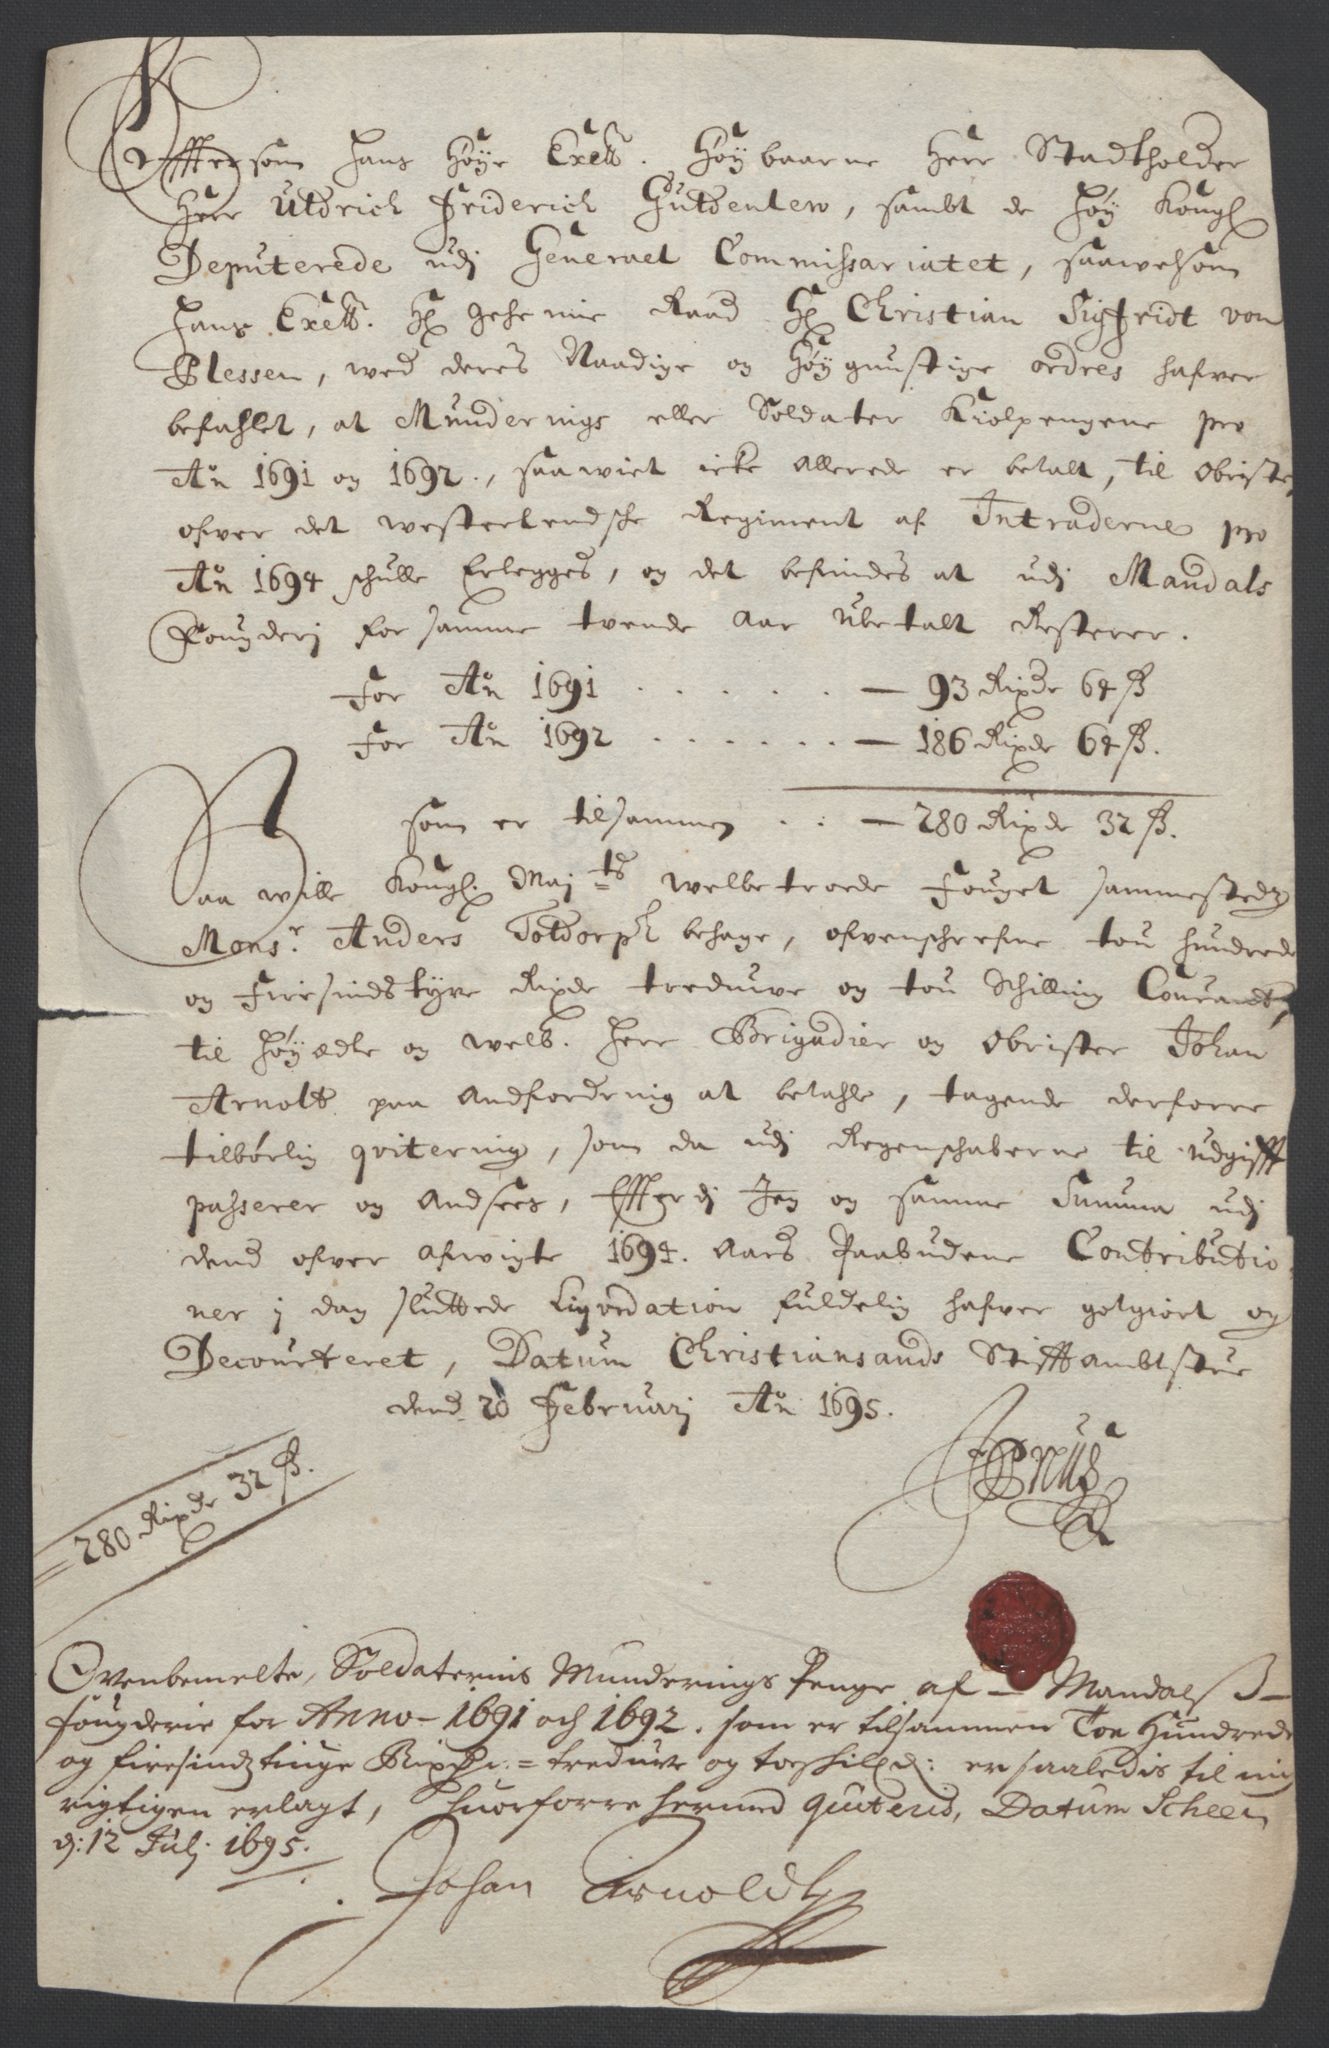 Effter som hans Höye Excell. Höybaarne Herr Stadtholder
Herr Uldrich Friderich Güldenlew, sambt de höy Kongl
Deputerede udj General Commissariatet, saawelsom
hans Excell. Hr geheime Raad Hr Christian Sigfridt von
Plessen, wed deres Naadige og Höygunstige ordres hafver
befahlet, at Munderings eller Soldater Kiolpengene pro
Ao 1691 og 1692., saawiet icke allerede er betalt, til Obriste,
ofver det westerlendsche Regiment af Intraderne pro
Ao 1694 schulle Erlegges, og det befindes at udj Mandals
Fougderj for samme tvende Aar Ubetalt Resterer.
For Ao 1691 . . . . . — 93 Rixdr 64 ß
For Ao 1692 . . . . . . — 186 Rixdr 64 ß.
som er tilsammen . . : — 280 Rixdr 32 ß.
Saa wille Kongl. Maj:ts welbetroede Fouget sammestedz
Monsr. Anders Toldorph behage, ofvenschrefne tou hundrede
og Fiirsindstyve Rixdr treduve og tou Schilling Courandt,
til höyædle og welb. Herr Brigadier og Obrister Johan
Arnolt paa Andfordring at betahle, tagende derforre
tilbörlig qvitering, som da udj Regenschaberne til udgifft
passerer og Andsees, Effterdj Jeg og samme Summa udj
dend ofver afvigte 1694. Aars Paabudene Contributio
ner j dag sluttede Liqvidation fuldelig hafver gotgiort og
Decourteret, Datum Christiansands Stifftambtstue
dend 20 Februarj Ao 1695.
280 Rixdr 32 ß.
Ovenbemelte, Soldaternis Munderings Penge af — Mandalß
fougderie for Anno – 1691 och 1692. som er tilsammen Toe Hundrede
og firesindztiuge Rixdr. = treduve og toe skilld: er saaledis til mig
rigtigen erlagt, huorforre hermed quiteris, Datum Scheen
d: 12 Julj. 1695.
Johan Arnoldt